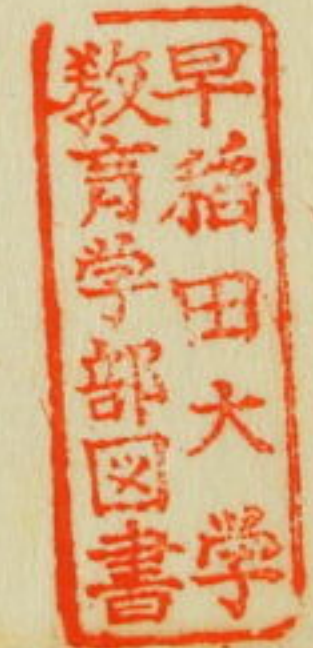 早稲田大學
教育学部図書